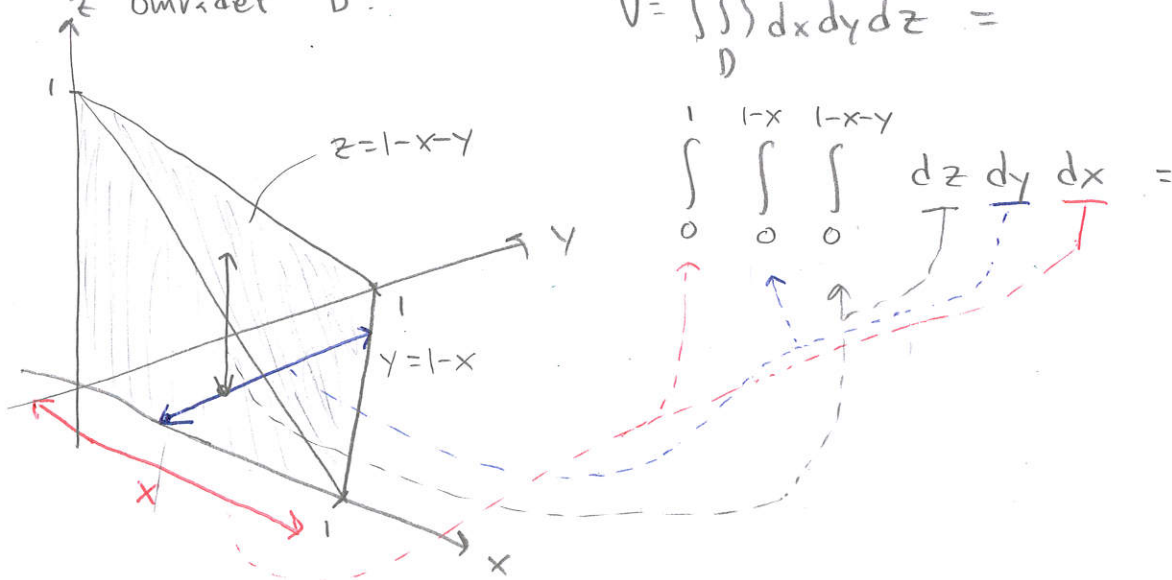 z området D.
V = ∭ dx dy dz =
D
1 1-x 1-x-y
∫ ∫ ∫ dz dy dx =
0 0 0
1
z=1-x-y
y
1
y=1-x
x
1
x